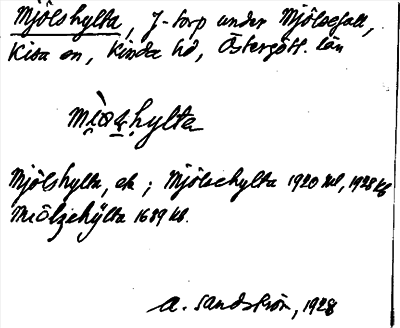 Mjölshylta, J-torp under Mjölsefall,
Kisa sn, Kinda hd, Östergötl. län
Mjölshylta, ek ; Mjölsehylta 1920 ml, 1928 kb
Miölzehÿlta 1689 kb.
A. Sandström, 1928